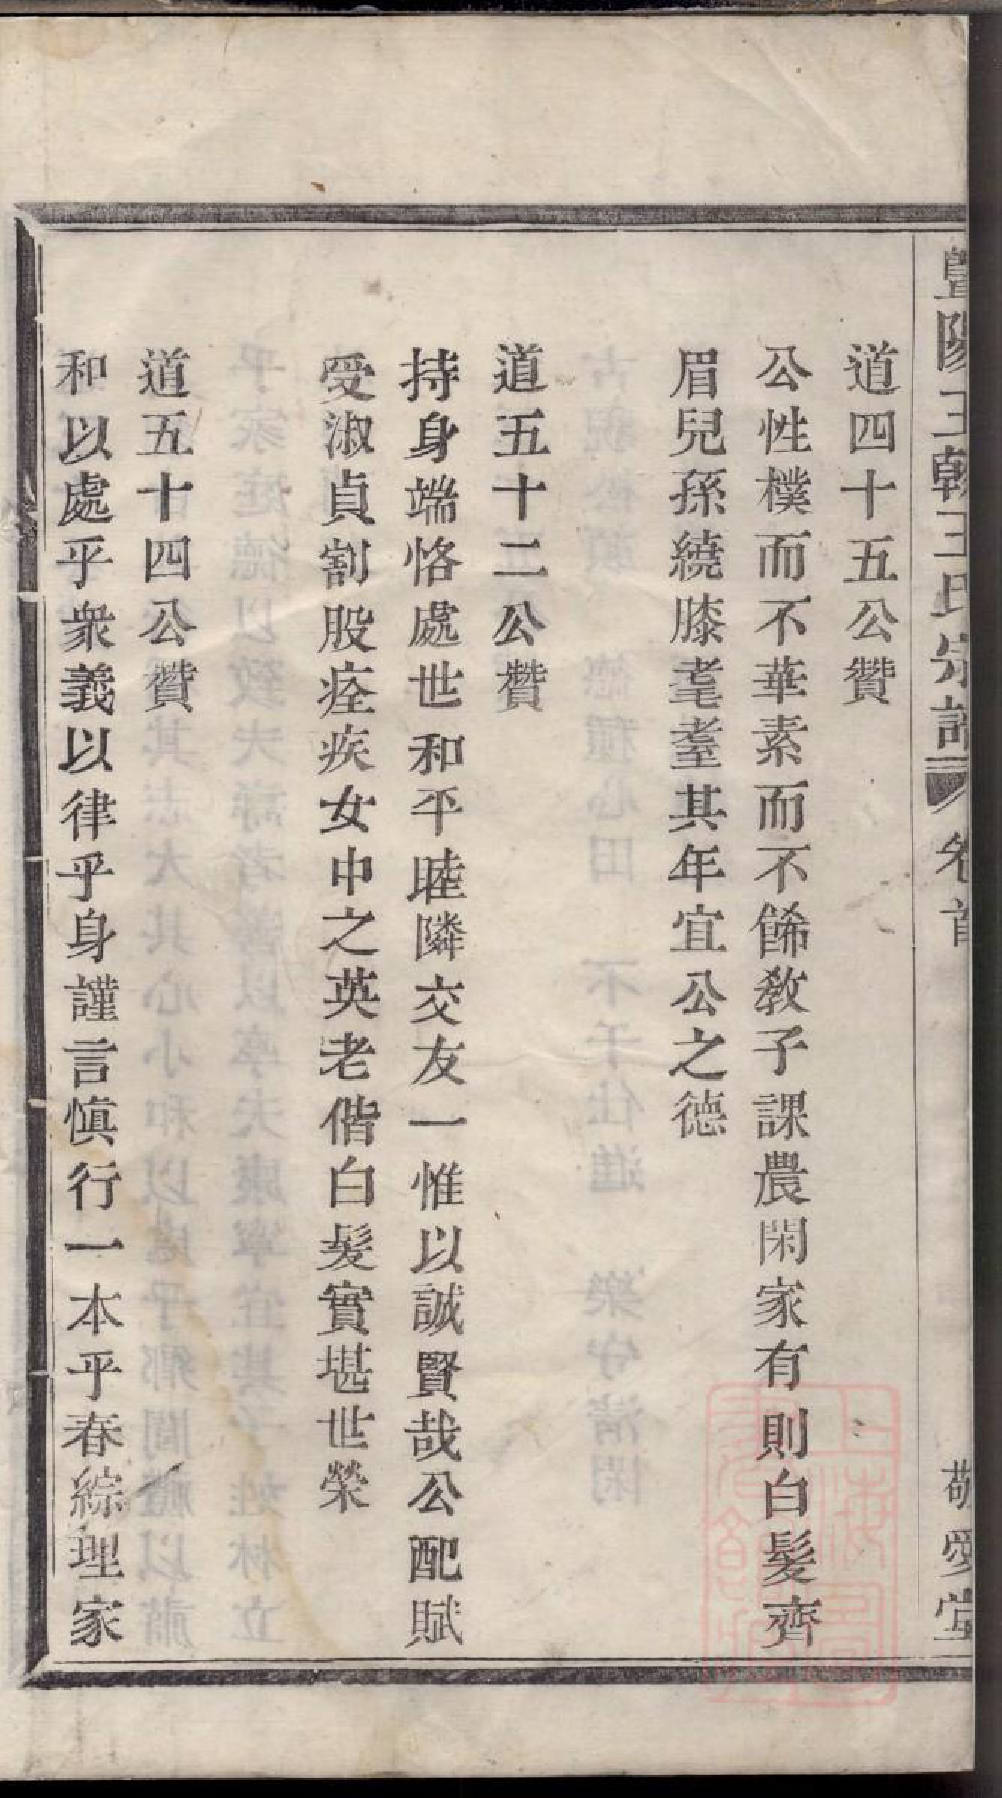 暨陽王韓王氏宗譜 卷首 敬愛堂
道四十五公贊
公性樸而不華素而不餙教子課農閑家有則白髮齊
眉兒孫繞膝耄耋其年宜公之德
道五十二公贊
持身端恪處世和平睦隣交友一惟以誠賢哉公配賦
受淑貞割股痊疾女中之英老偕白髮實堪世榮
道五十四公贊
和以處乎衆義以律乎身謹言慎行一本乎春綜理家